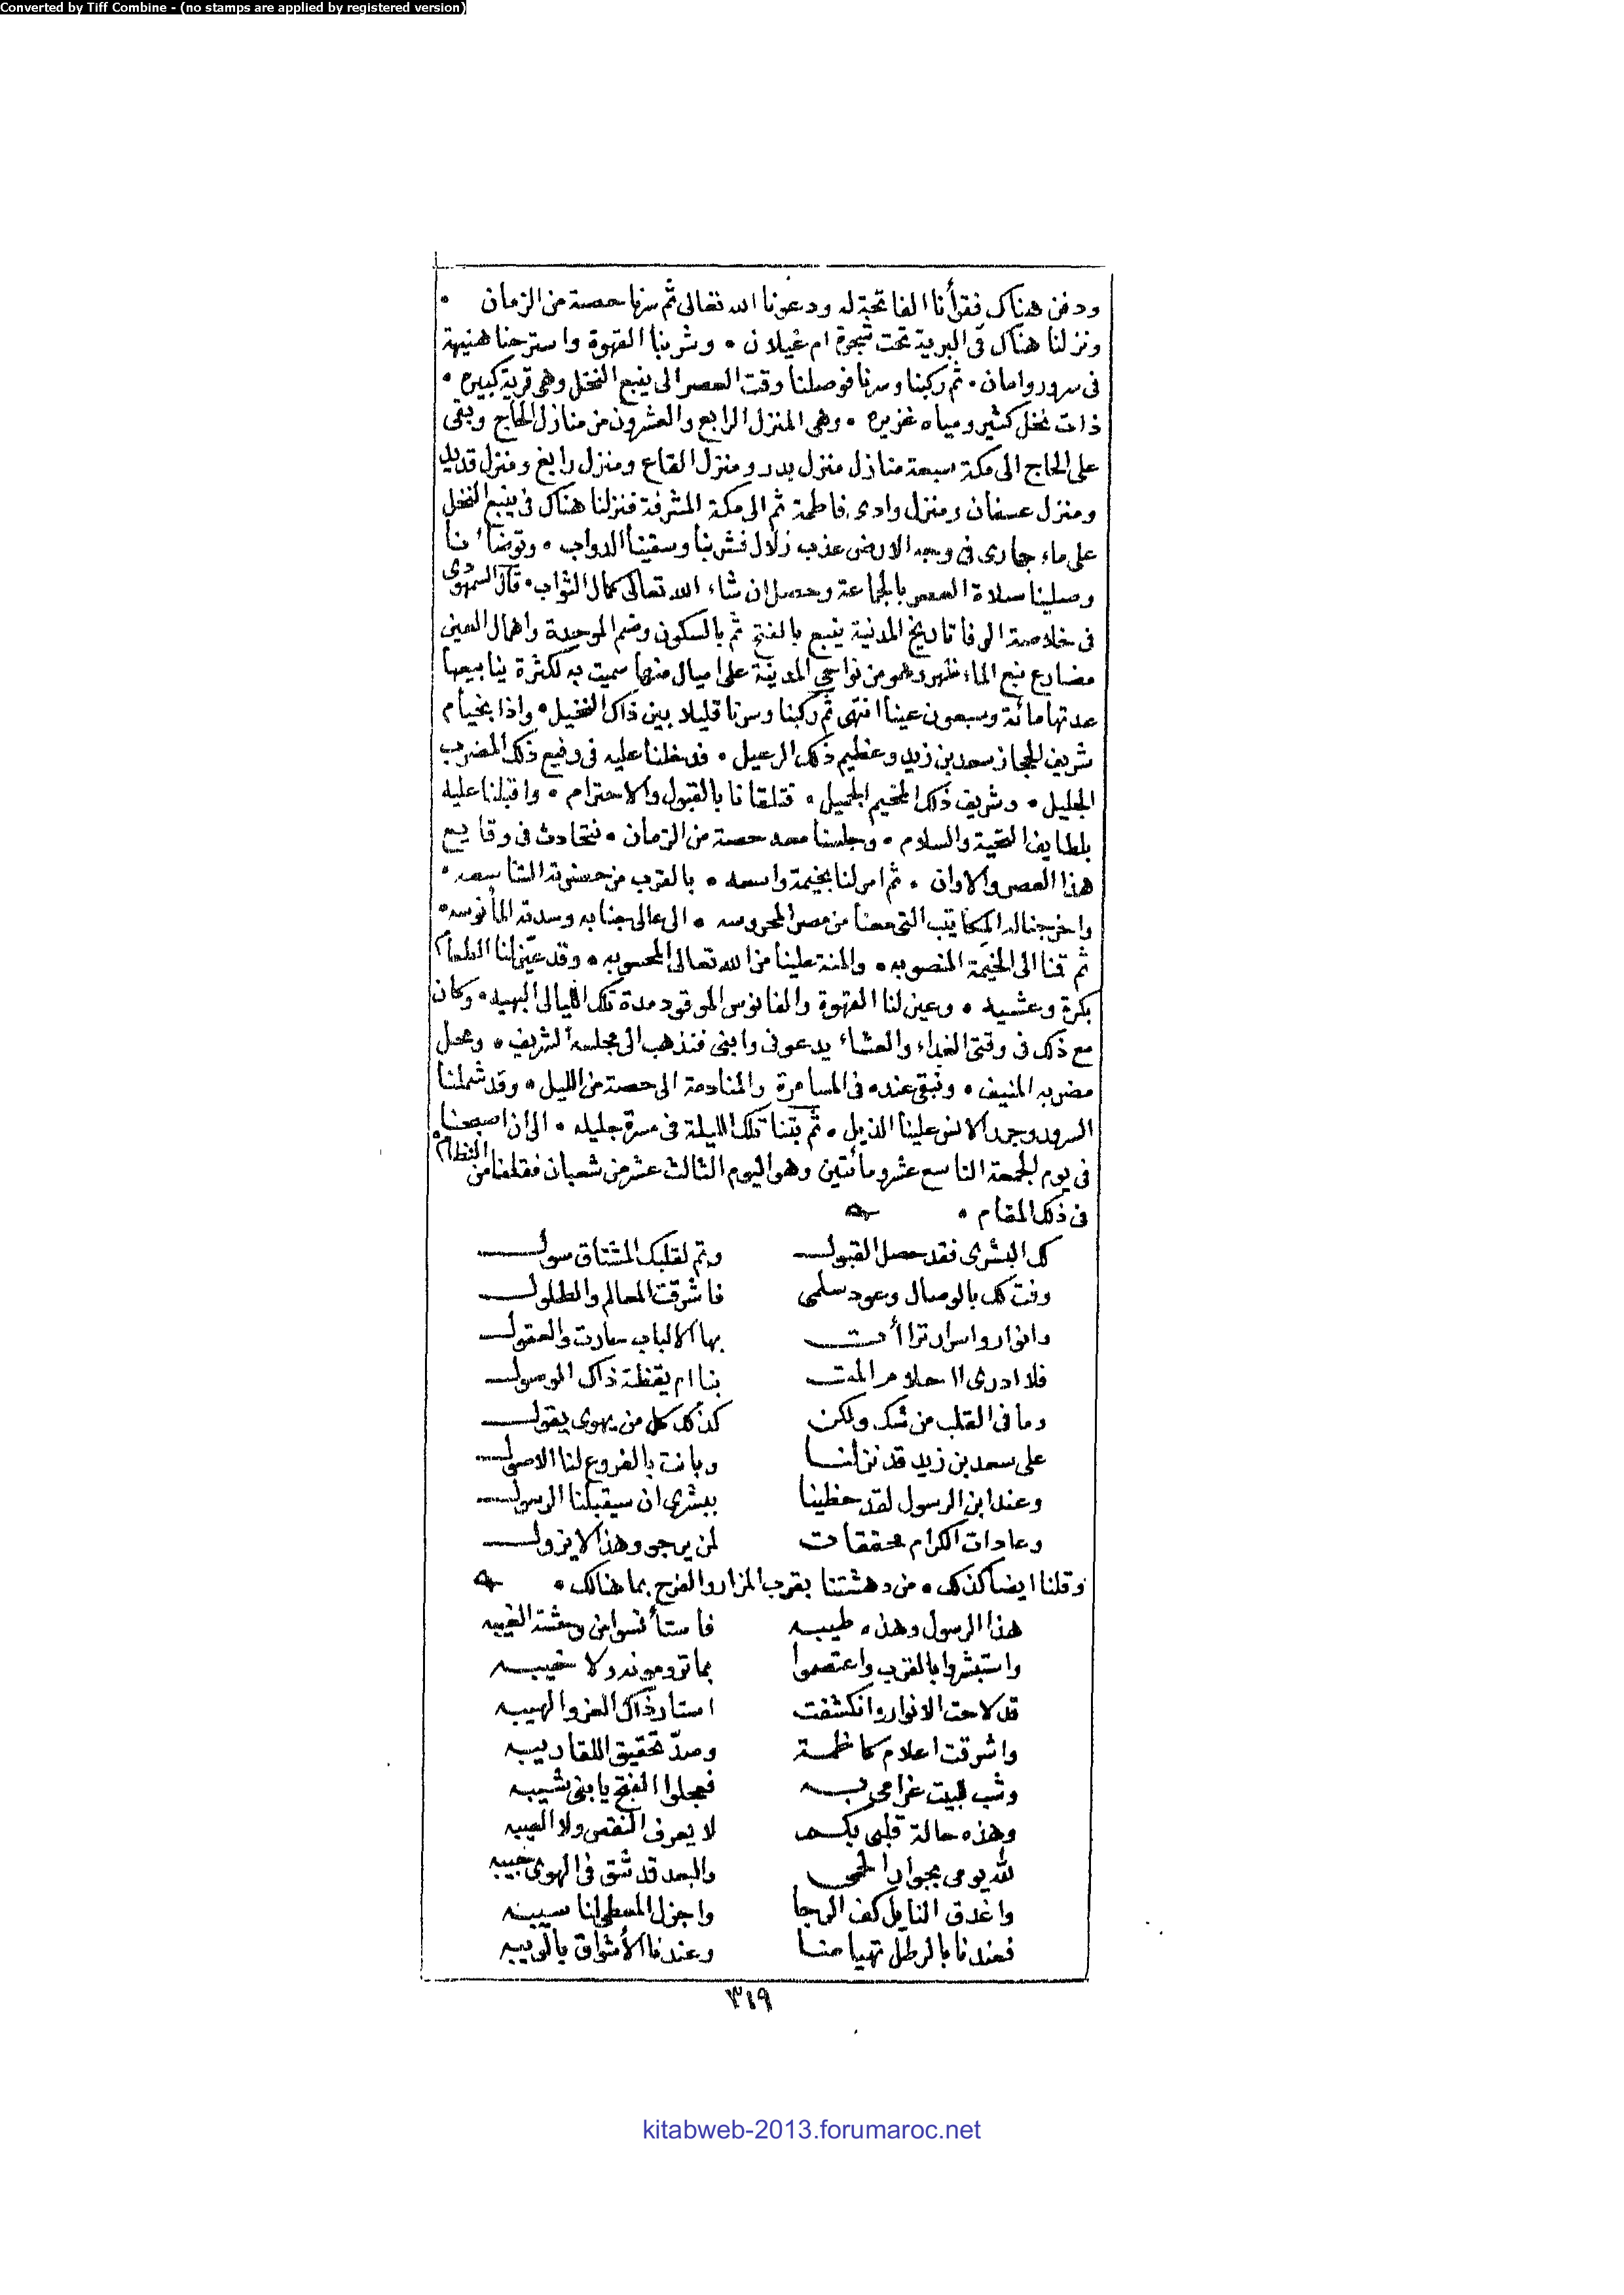 Converted by Tiff Combine - (no stamps are applied by registered version)
ودفن هناك فقرأنا الفاتحة له ودعونا الله تعالى ثم سرنا حصة من الزمان •
ونزلنا هناك فى البرية تحت شجرة ام غيلان • وشربنا القهوة واسترحنا هنيهة
فى سرور وامان • ثم ركبنا وسرنا فوصلنا وقت العصر الى ينبع النخل وهى قرية كبيره •
ذات نخل كثير ومياه غزيره • وهى المنزل الرابع والعشرون من منازل الحاج وبقى
على الحاج الى مكة سبعة منازل منزل بدر ومنزل القاع ومنزل رابغ ومنزل قديد
ومنزل عسفان ومنزل وادى فاطمة ثم الى مكة المشرفة فنزلنا هناك فى ينبع النخل
على ماء جارى فى وجه الارض عذب زلال فشربنا وسقينا الدواب • وتوضأنا
وصلينا صلاة العصر بالجماعة وحصل ان شاء الله تعالى كمال الثواب • قال السمهودى
فى خلاصة الوفا تاريخ المدنية ينبع بالفتح ثم بالسكون وضم الموحدة واهمال العين
مضارع نبع الماء ظهر وهو من نواحى المدينة على اميال منها سميت به لكثرة ينابيعها
عدتها مائة وسبعون عينا انتهى ثم ركبنا وسرنا قليلا بين ذاك النخيل • واذا بخيام
شريف الحجاز سعد بن زيد وعظيم ذلك الرعيل • فدخلنا عليه فى رفيع ذلك المضرب
الجليل • وشريف ذلك المخيم الجميل • فتلقانا بالقبول والاحترام • واقبلنا عليه
بلطايف التحية والسلام • وجلسنا معه حصة من الزمان • نتحادث فى وقايع
هذا العصر والاوان • ثم امر لنا بخيمة واسعه • بالقرب من حضرته الشاسعه •
واخرجنا له المكاتيب التى معنا من مصر المحروسه • الى عالى جنابه وسدته المأنوسه •
ثم قمنا الى الخيمة المنصوبه • والمنة علينا من الله تعالى المحسوبه • وقد عيّن لنا الطعام
بكرة وعشيه • وعين لنا القهوة والفانوس الموقود مدة تلك الليالى البهيه • وكان
مع ذلك فى وقتى الغداء والعشاء يدعونى وابنى فنذهب الى مجلسه الشريف • ومحل
مضربه المنيف • ونبقى عنده فى المسامرة والمنادمة الى حصة من الليل • وقد شملنا
السرور وجر الانس علينا الذيل • ثم بتنا تلك الليلة فى مسرة جليله • الى ان اصبحنا
فى يوم الجمعة التاسع عشر ومائتين وهو اليوم الثالث عشر من شعبان فقلنا من النظام
فى ذلك المقام •
لك البشرى فقد حصل القبول وتم لقلبك المشتاق سول
وفت لك بالوصال وعود سلمى فاشرقت المعالم والطلول
وانوار واسرار تراأت بها الالباب حارت والعقول
فلا ادرى ااحلام المت بنا ام يقظة ذاك الوصول
وما فى القلب من شك ولكن كذلك كل من يهوى يقول
على سعد بن زيد قد نزلنا وبانت بالفروع لنا الاصول
وعند ابن الرسول لقد حظينا ببشرى ان سيقبلنا الرسول
وعادات الكرام محققات لمن يرجو وهذا لا يزول
وقلنا ايضا كذلك • من دهشتنا بقرب المزار والفرح بما هنالك •
هذا الرسول وهذه طيبه فاستأنسوا من وحشة الغيبه
واستبشروا بالقرب واعتصموا بما ترومونه ولا خيبه
قد لاحت الانوار وانكشفت استار ذاك العز والهيبه
واشرقت اعلام كاظمة وصدّ تحقيق اللقا ريبه
وشب للبيت غرامى به فعجلوا الفتح يا بنى شيبه
وهذه حالة قلبى بكم لا يعرف النقص ولا العيبه
لله يومى بجوار الحمى والبعد قد شق فى الهوى جيبه
واغدق النايل كف الرجا واجزل المعطى لنا سيبه
فعندنا بالرطل تهيامنا وعندنا الأشواق بالويبه
٣١٩
kitabweb-2013.forumaroc.net